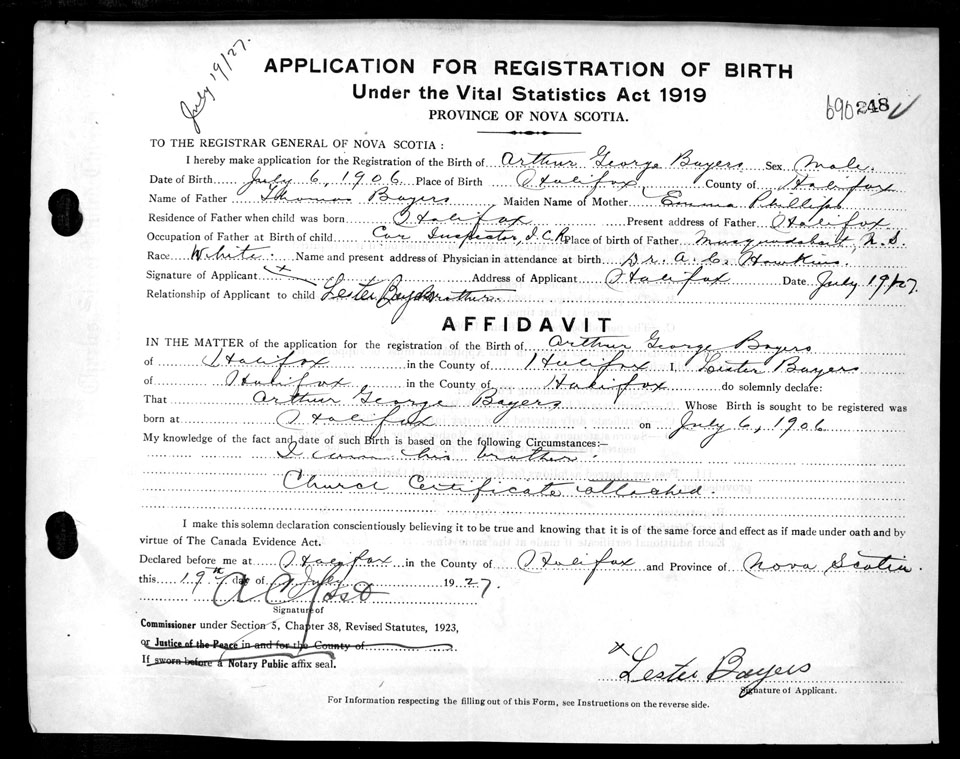 July 19/27.
APPLICATION FOR REGISTRATION OF BIRTH
Under the Vital Statistics Act 1919
PROVINCE OF NOVA SCOTIA.
690 248
TO THE REGISTRAR GENERAL OF NOVA SCOTIA :
I hereby make application for the Registration of the Birth of Arthur George Bayers Sex Male.
Date of Birth July 6, 1906 Place of Birth Halifax County of Halifax
Name of Father Thomas Bayers Maiden Name of Mother Emma Phillips
Residence of Father when child was born Halifax Present address of Father Halifax
Occupation of Father at Birth of child Car Inspector, I.C.R. Place of birth of Father Musquodoboit, N.S.
Race White. Name and present address of Physician in attendance at birth Dr. A. C. Hawkins.
Signature of Applicant x Lester Bayers Address of Applicant Halifax Date July 19/27.
Relationship of Applicant to child Brother.
AFFIDAVIT
IN THE MATTER of the application for the registration of the Birth of Arthur George Bayers
of Halifax in the County of Halifax I, Lester Bayers
of Halifax in the County of Halifax do solemnly declare:
That Arthur George Bayers Whose Birth is sought to be registered was
born at Halifax on July 6, 1906
My knowledge of the fact and date of such Birth is based on the following Circumstances:—
I am his brother.
Church Certificate attached.
I make this solemn declaration conscientiously believing it to be true and knowing that it is of the same force and effect as if made under oath and by
virtue of The Canada Evidence Act.
Declared before me at Halifax in the County of Halifax and Province of Nova Scotia
this 19th day of July 1927.
Signature of
Commissioner under Section 5, Chapter 38, Revised Statutes, 1923,
or Justice of the Peace in and for the County of
If sworn before a Notary Public affix seal.
x Lester Bayers
Signature of Applicant.
For Information respecting the filling out of this Form, see Instructions on the reverse side.